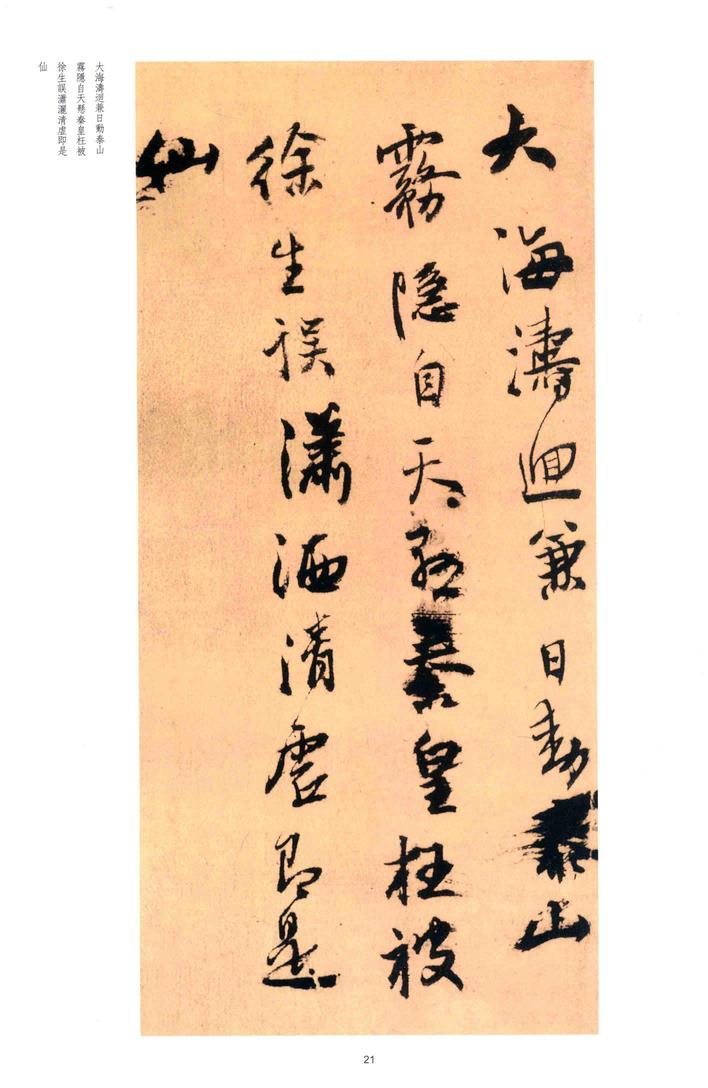 大海濤迴兼日動泰山
霧隱自天懸秦皇枉被
徐生誤瀟灑清虛即是
仙
大海濤迴兼日動泰山
霧隱自天懸秦皇枉被
徐生誤瀟洒清虛即是
仙
21